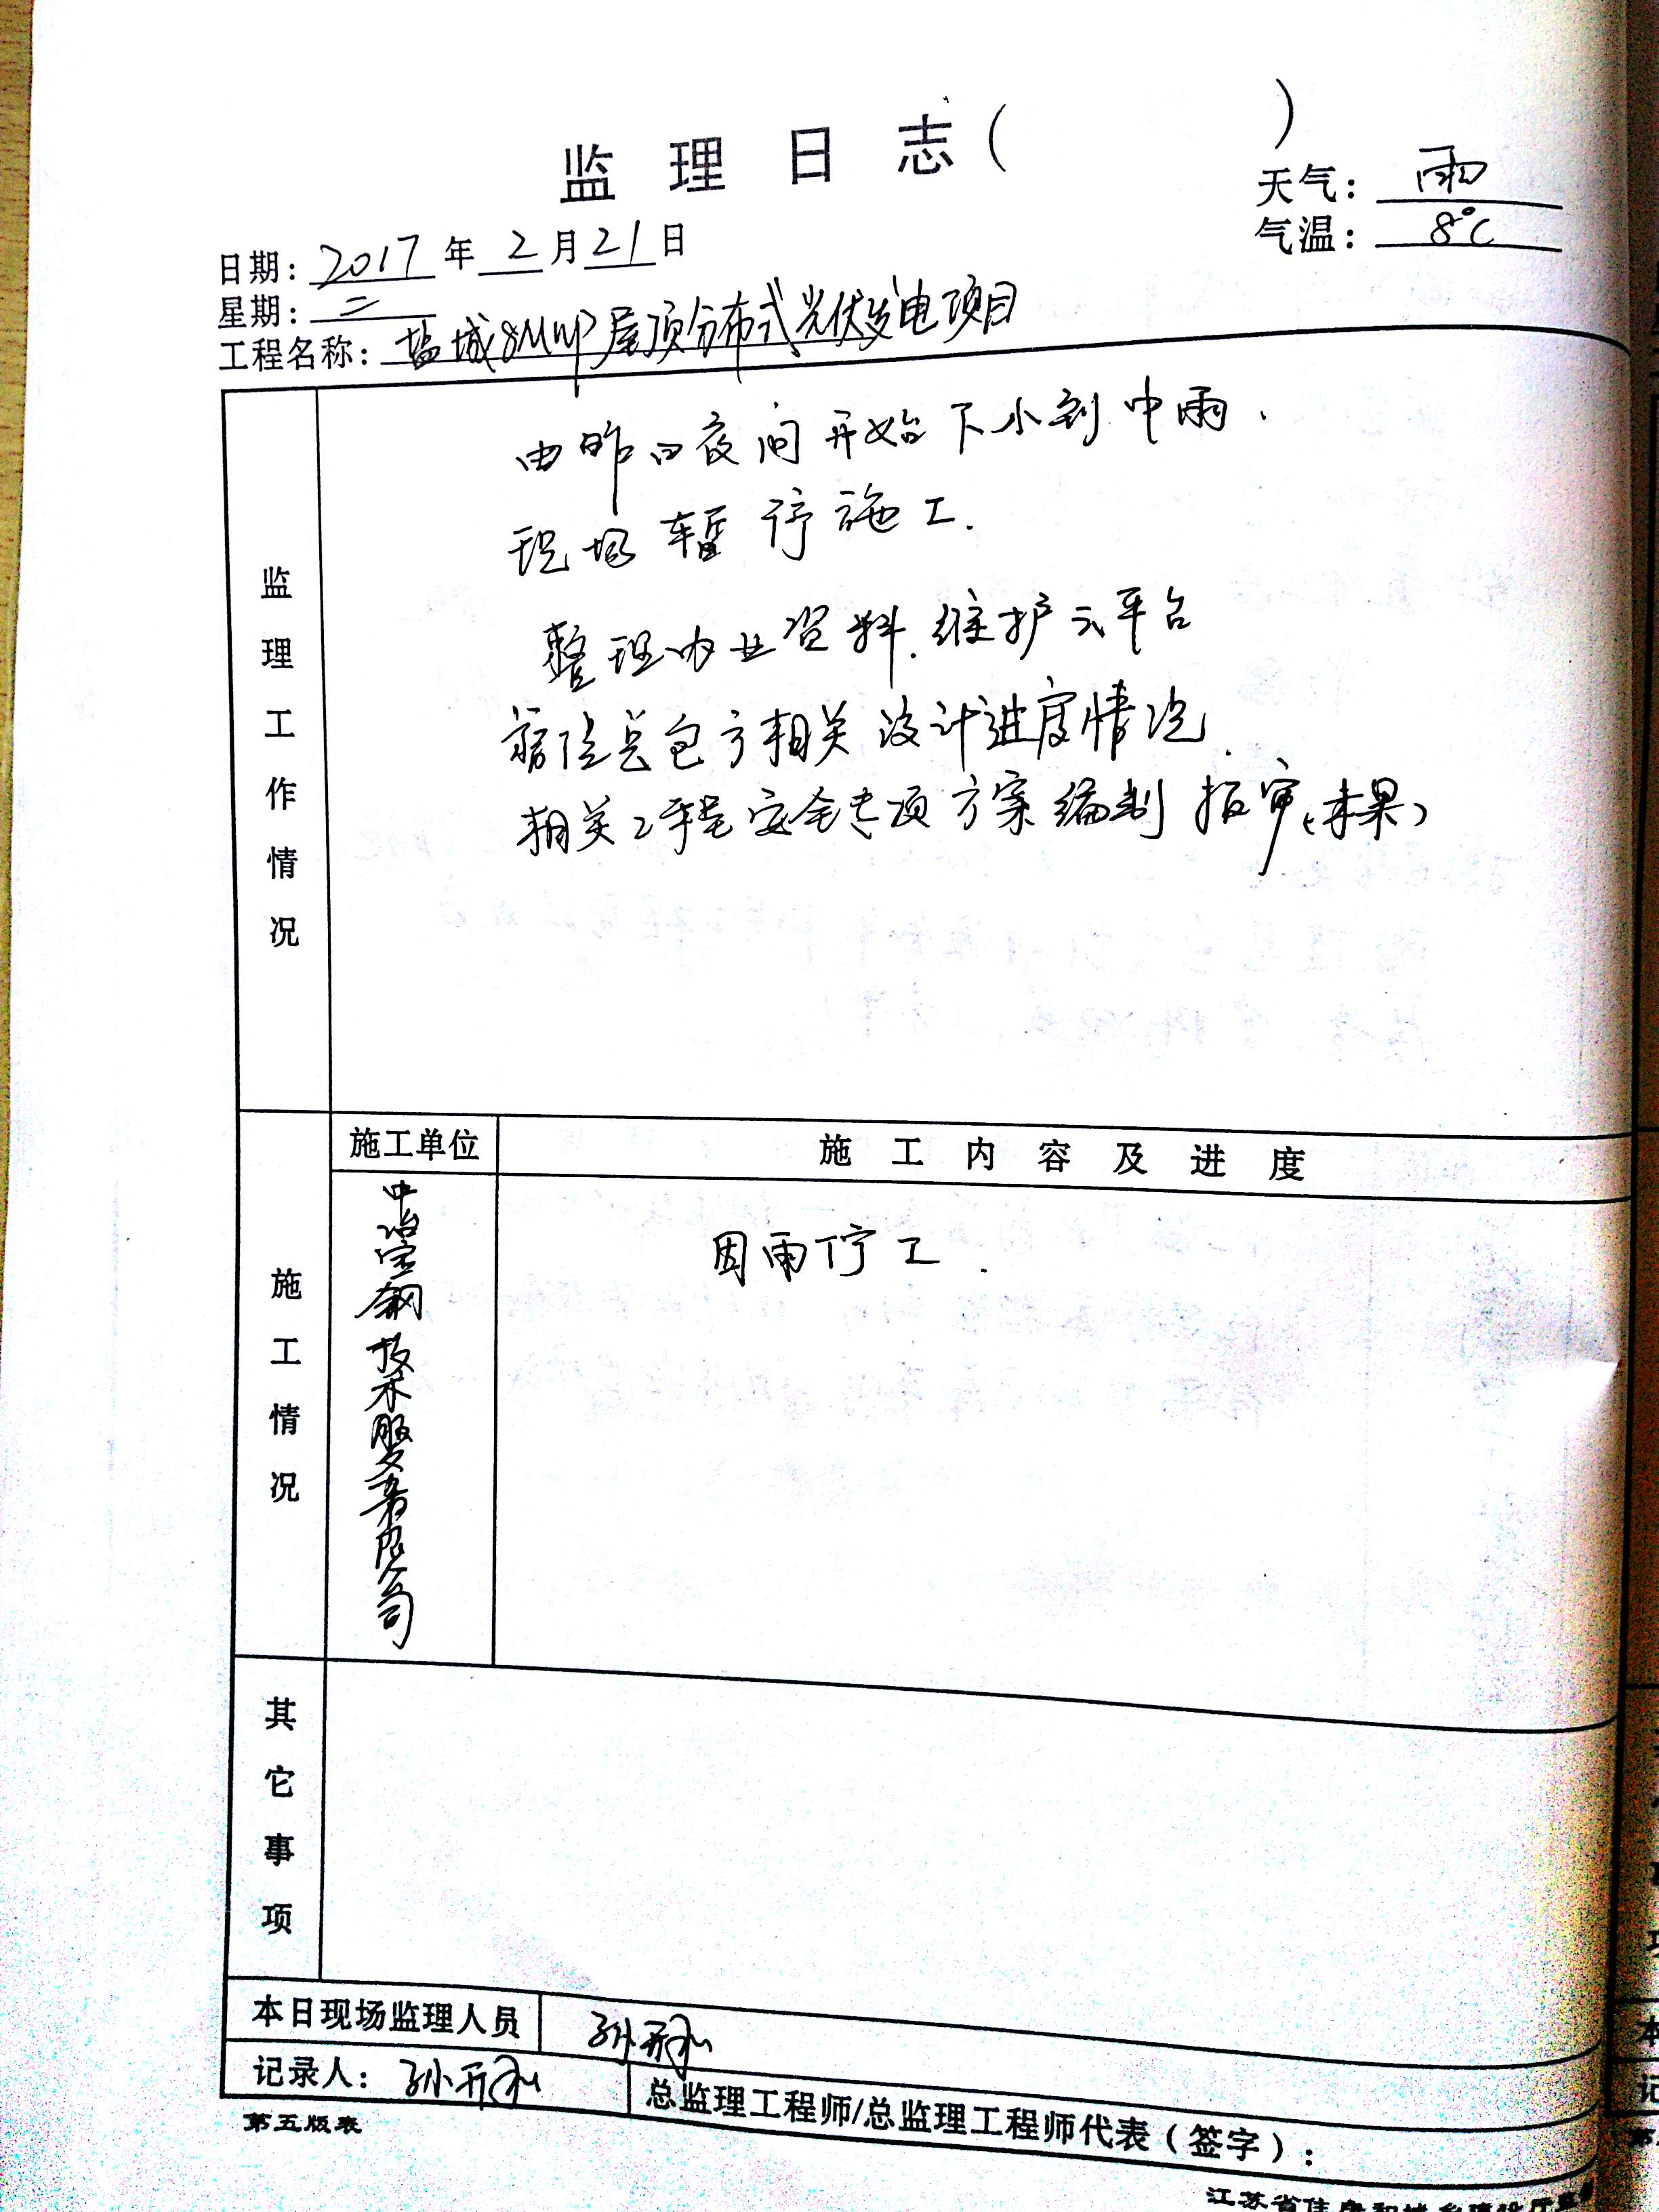 监理日志（ ）
天气：雨
气温：8℃
日期：2017年2月21日
星期：二
工程名称：盐城8MWP屋顶分布式光伏发电项目
监理工作情况
由昨日夜间开始下小到中雨.
现场暂停施工.
整理内业资料.维护云平台
总包方相关设计进度情况.
相关工程安全专项方案编制报审(未果)
施工情况
施工单位
施工内容及进度
中冶宝钢技术服务有限公司
因雨停工.
其它事项
本日现场监理人员
孙
记录人：孙
总监理工程师/总监理工程师代表（签字）：
第五版表
江苏省住房和城乡建设厅监